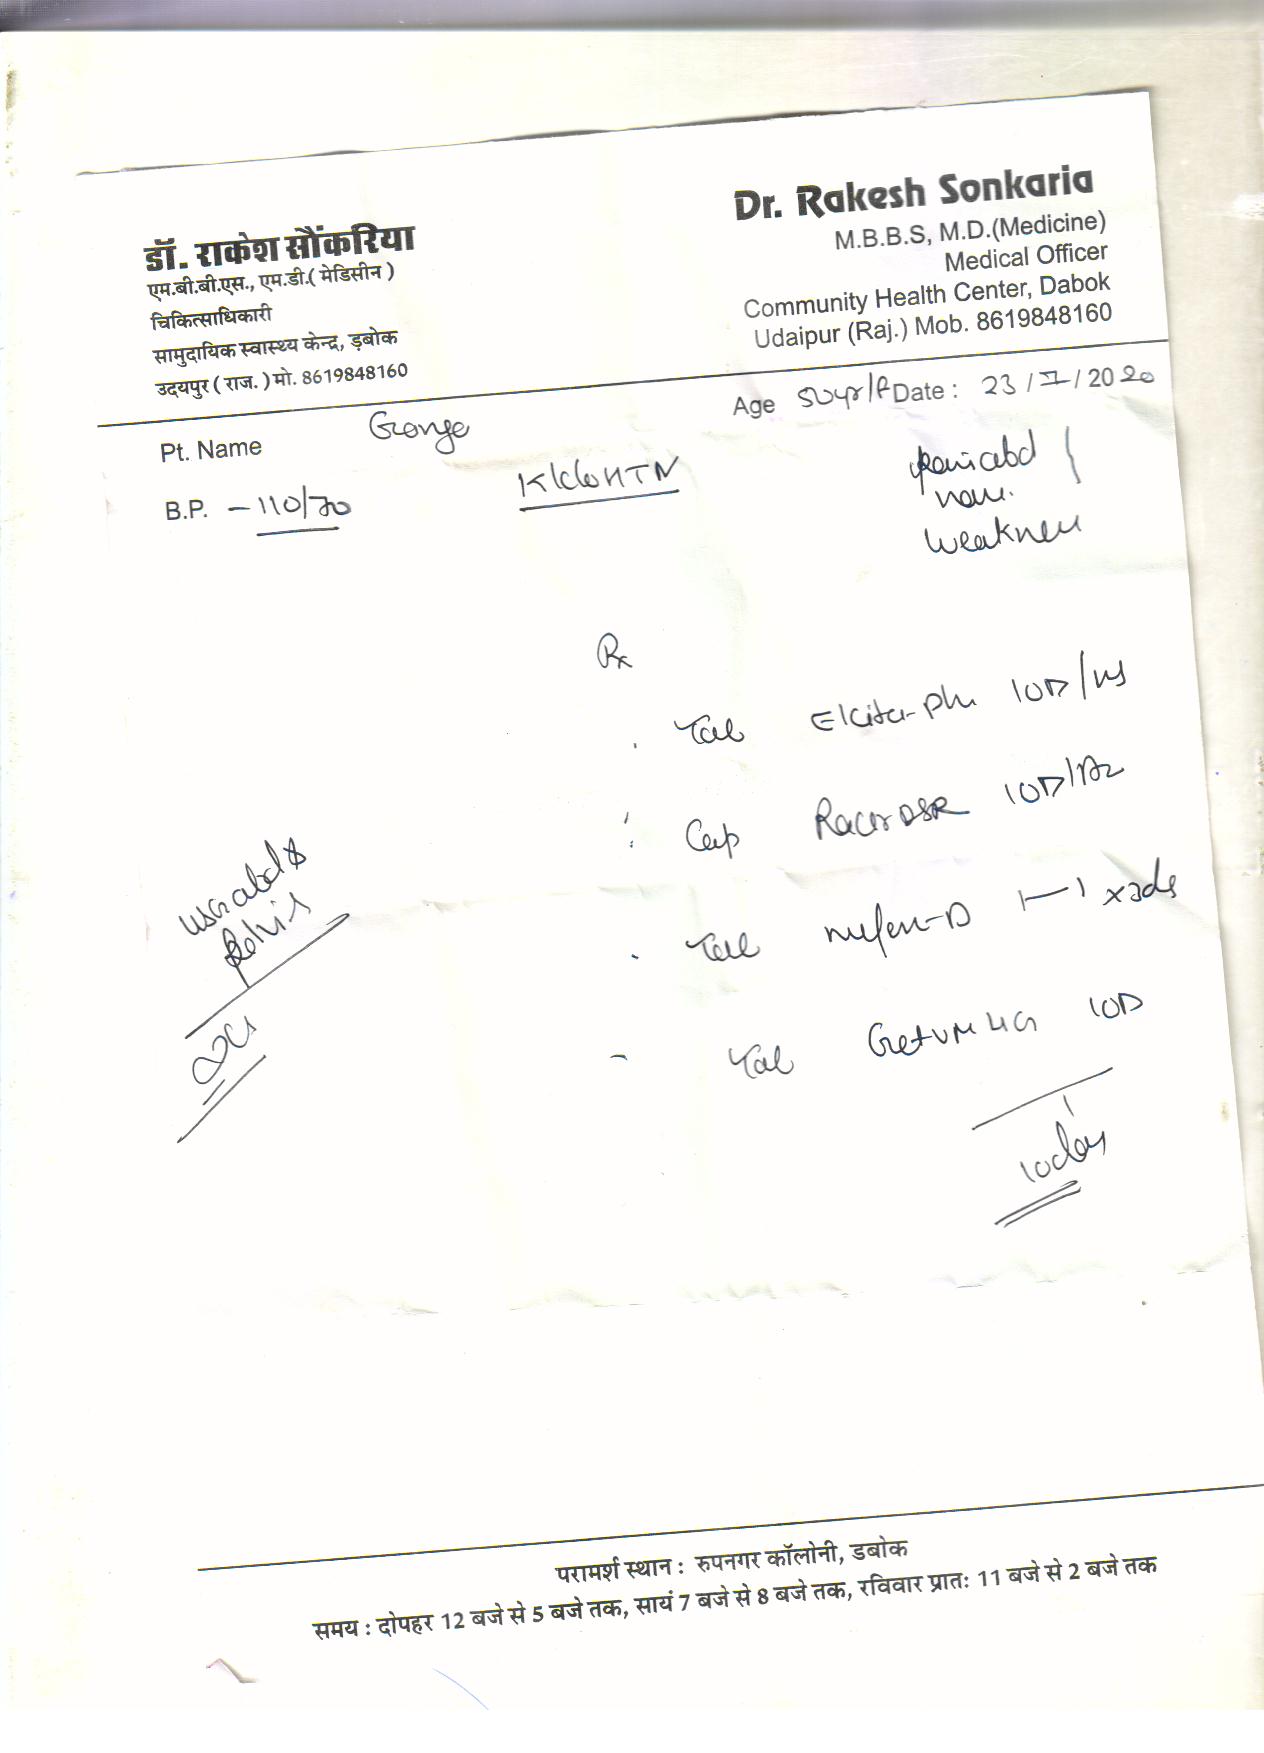 डॉ. राकेश सौंकरिया
एम.बी.बी.एस., एम.डी.( मेडिसीन )
चिकित्साधिकारी
सामुदायिक स्वास्थ्य केन्द्र, ड़बोक
उदयपुर ( राज. ) मो. 8619848160
Dr. Rakesh Sonkaria
M.B.B.S, M.D.(Medicine)
Medical Officer
Community Health Center, Dabok
Udaipur (Raj.) Mob. 8619848160
Pt. Name
Age Date : 23 / / 2020
B.P. - 110/70
K/c/o HTN
pain abd
weakness
Rx
Tab 1OD/
Cap Racir DSR 1OD/
Tab 1-1 x 3days
Tab 1OD
10 day
USG abd &
Pelvis
परामर्श स्थान : रुपनगर कॉलोनी, डबोक
समय : दोपहर 12 बजे से 5 बजे तक, सायं 7 बजे से 8 बजे तक, रविवार प्रातः 11 बजे से 2 बजे तक